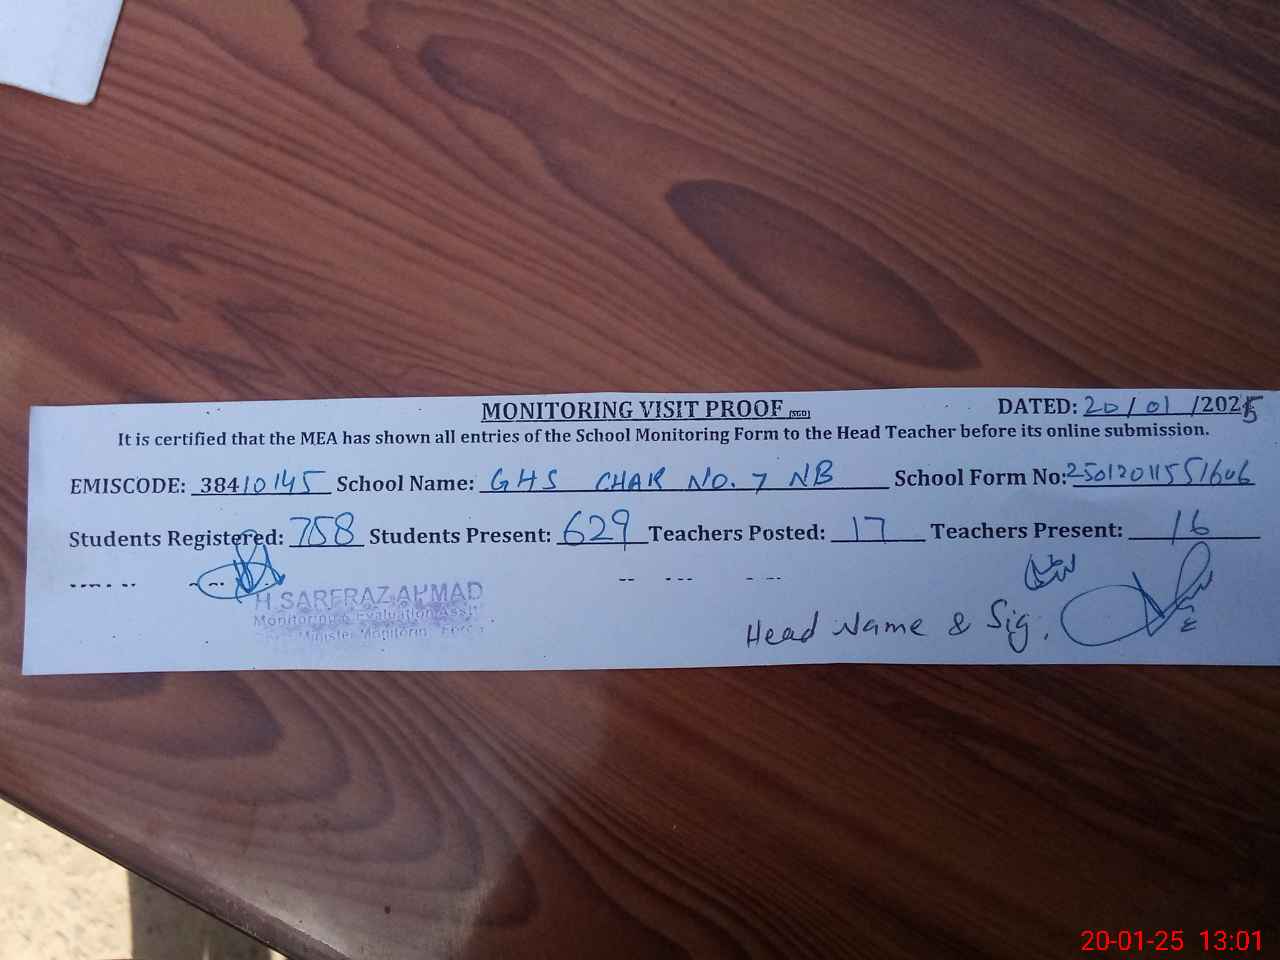 MONITORING VISIT PROOF (SGD) DATED: 20/01/2025
It is certified that the MEA has shown all entries of the School Monitoring Form to the Head Teacher before its online submission.
EMISCODE: 38410145 School Name: GHS CHAK NO. 7 NB School Form No: 25012011551606
Students Registered: 758 Students Present: 629 Teachers Posted: 17 Teachers Present: 16
H.SARFRAZ AHMAD
Monitoring & Evaluation Asst:
Minister Monitoring Force
Head Name & Sig.
20-01-25 13:01